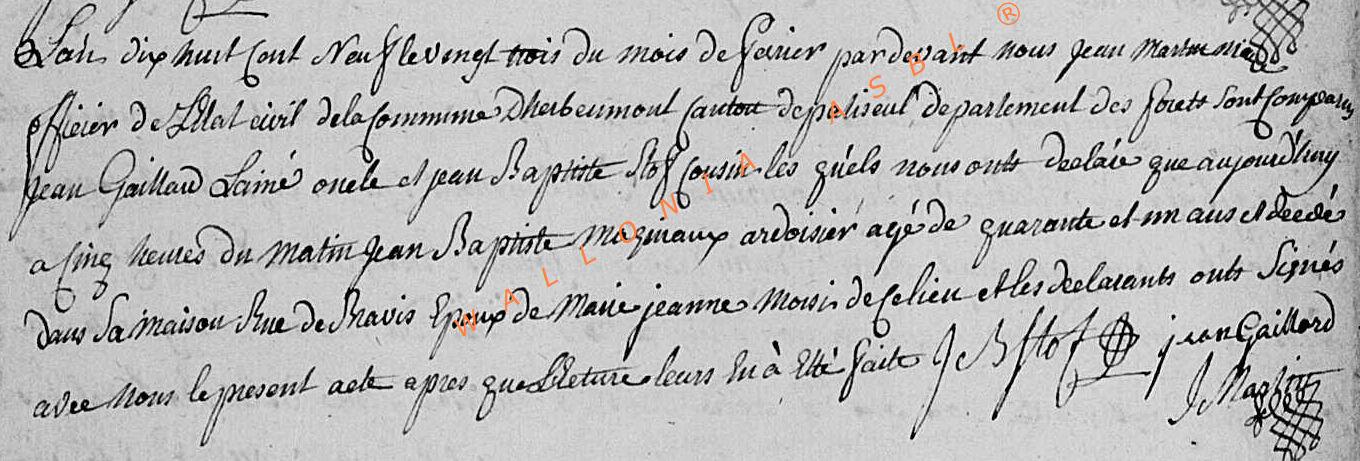 L'an dix huit Cent Neuf le vingt trois du mois de fevrier pardevant nous Jean Martin
officier de L'Etat civil de la Commune Dherbeumont Canton de paliseul departement des forets sont Comparus
Jean Gaillard Lainé oncle et jean Baptiste Stof Cousin les quels nous onts declaré que aujourd'huy
a Cinq heures du matin Jean Baptiste ardoisier agé de quarante et un ans et decedé
dans Sa maison Rue de Bravis Epoux de Marie jeanne Moisi de Ce lieu et les declarants onts Signés
avec Nous le present acte apres que Lecture leurs En à Etté faite J B Stof jean Gaillard
J Martin
WALLONIA ASBL ®